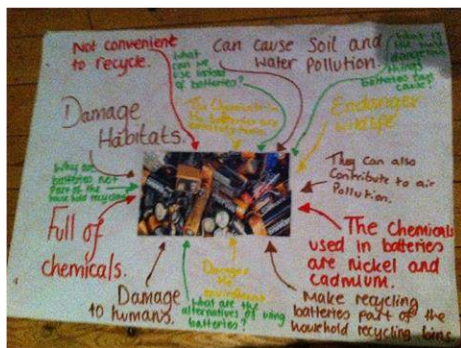 Not convenient
to recycle.
What
can we
use instead
of batteries?
Can cause Soil and
Water Pollution.
What is
the most
things
batteries can
cause?
The Chemicals in
the batteries are
Endanger
wildlife
Damage
Habitats.
Why are
batteries not
Part of the
household recycling
They can also
Contribute to air
Pollution.
Full of
chemicals.
The Chemicals
used in batteries
are nickel and
cadmium.
Damage
to humans.
What are the
alternatives of using
batteries?
Damages
the environment
Make recycling
batteries part of the
household recycling bins